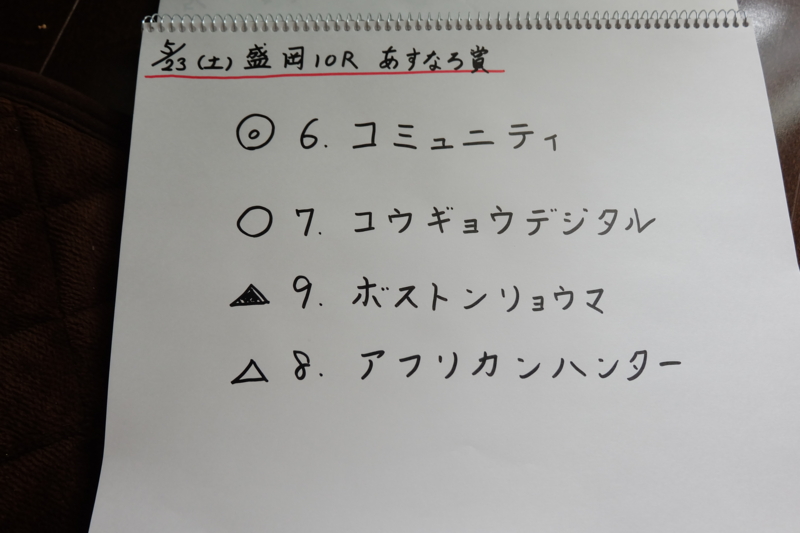 5/23(土) 盛岡10R あすなろ賞
◎ 6. コミュニティ
○ 7. コウギョウデジタル
▲ 9. ボストンリョウマ
△ 8. アフリカンハンター